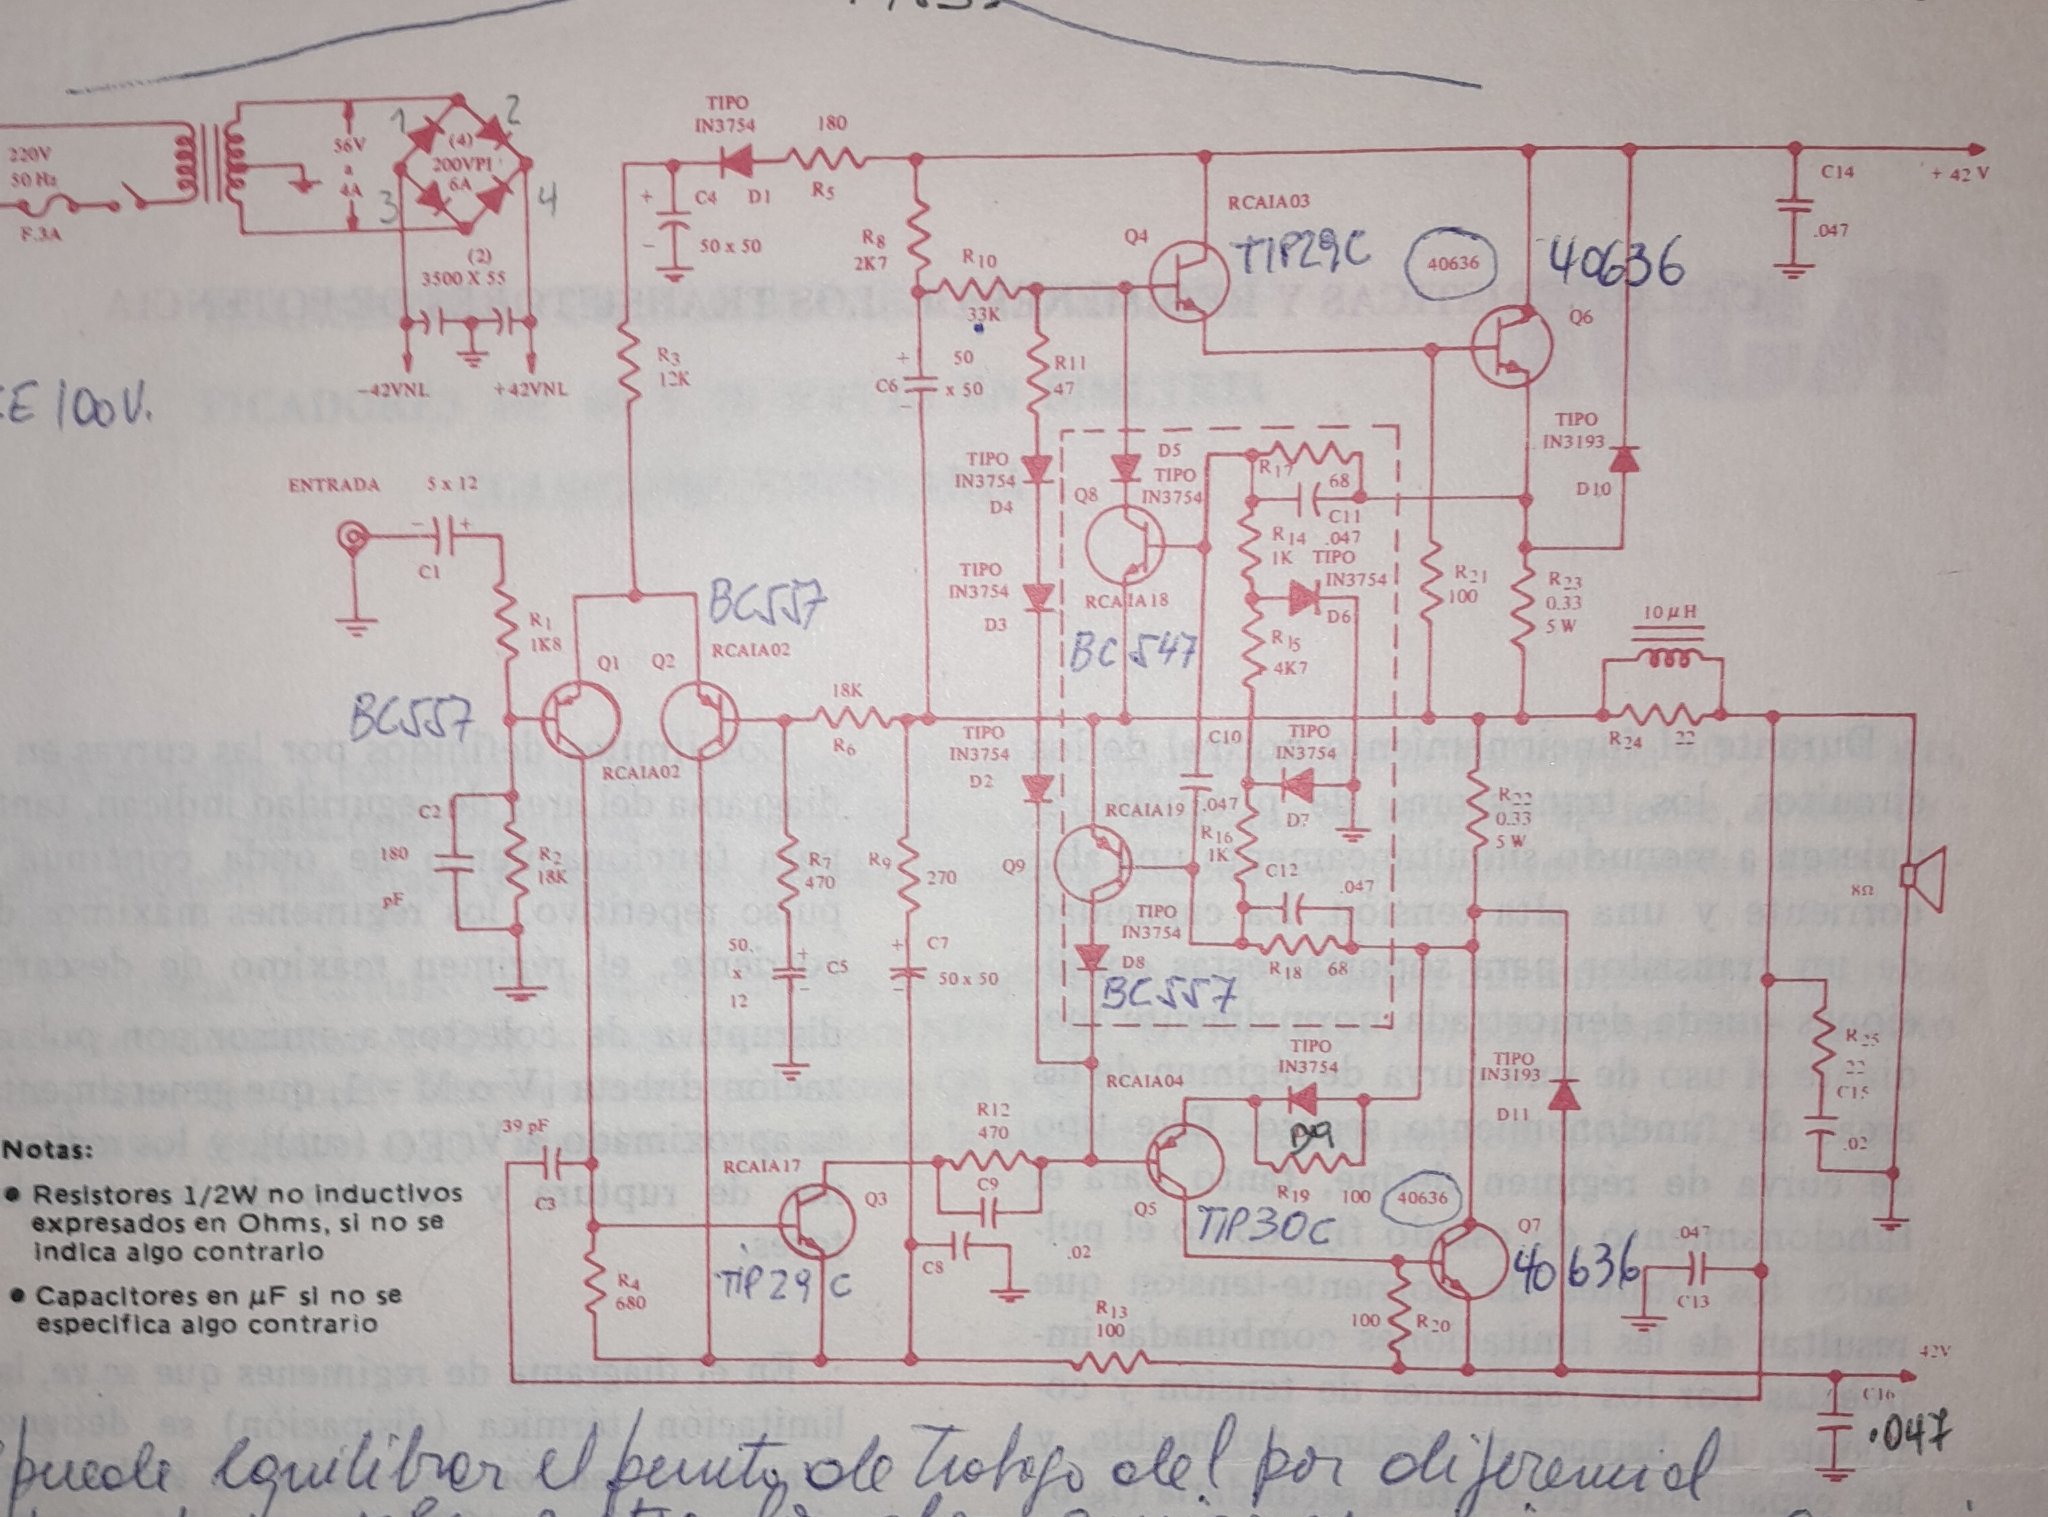 1
2
3
4
220V
50 Hz
F.3A
56V
a
4A
(4)
200VPI
6A
(2)
3500 X 55
-42VNL
+42VNL
CE 100V.
TIPO
IN3754
D1
180
R5
+
-
C4
50 x 50
R3
12K
R8
2K7
R10
33K
+
-
C6
50
x 50
R11
47
RCAIA03
Q4
TIP29C
40636
40636
Q6
C14
.047
+ 42 V
TIPO
IN3193
D10
ENTRADA
5 x 12
-
+
C1
R1
1K8
BC557
Q1
Q2
BC557
RCAIA02
RCAIA02
18K
R6
TIPO
IN3754
D4
TIPO
IN3754
D3
TIPO
IN3754
D2
D5
TIPO
IN3754
Q8
RCAIA18
BC547
R17
68
C11
.047
R14
1K
TIPO
IN3754
D6
R15
4K7
R21
100
R23
0.33
5 W
10 µH
R24
22
C10
.047
TIPO
IN3754
D7
RCAIA19
Q9
R16
1K
C12
.047
R22
0.33
5 W
8Ω
TIPO
IN3754
D8
R18
68
BC557
C2
180
pF
R2
18K
R7
470
R9
270
50
x
12
+
-
C5
+
-
C7
50 x 50
TIPO
IN3754
D9
RCAIA04
R19
100
Q5
TIP30C
TIPO
IN3193
D11
R25
22
C15
.02
39 pF
C3
RCAIA17
Q3
TIP29C
R12
470
C9
C8
.02
R4
680
R13
100
40636
Q7
40636
100
R20
.047
C13
42V
C16
.047
Notas:
• Resistores 1/2W no inductivos
expresados en Ohms, si no se
indica algo contrario
• Capacitores en µF si no se
especifica algo contrario
puede equilibrar el punto de trabajo del par diferencial